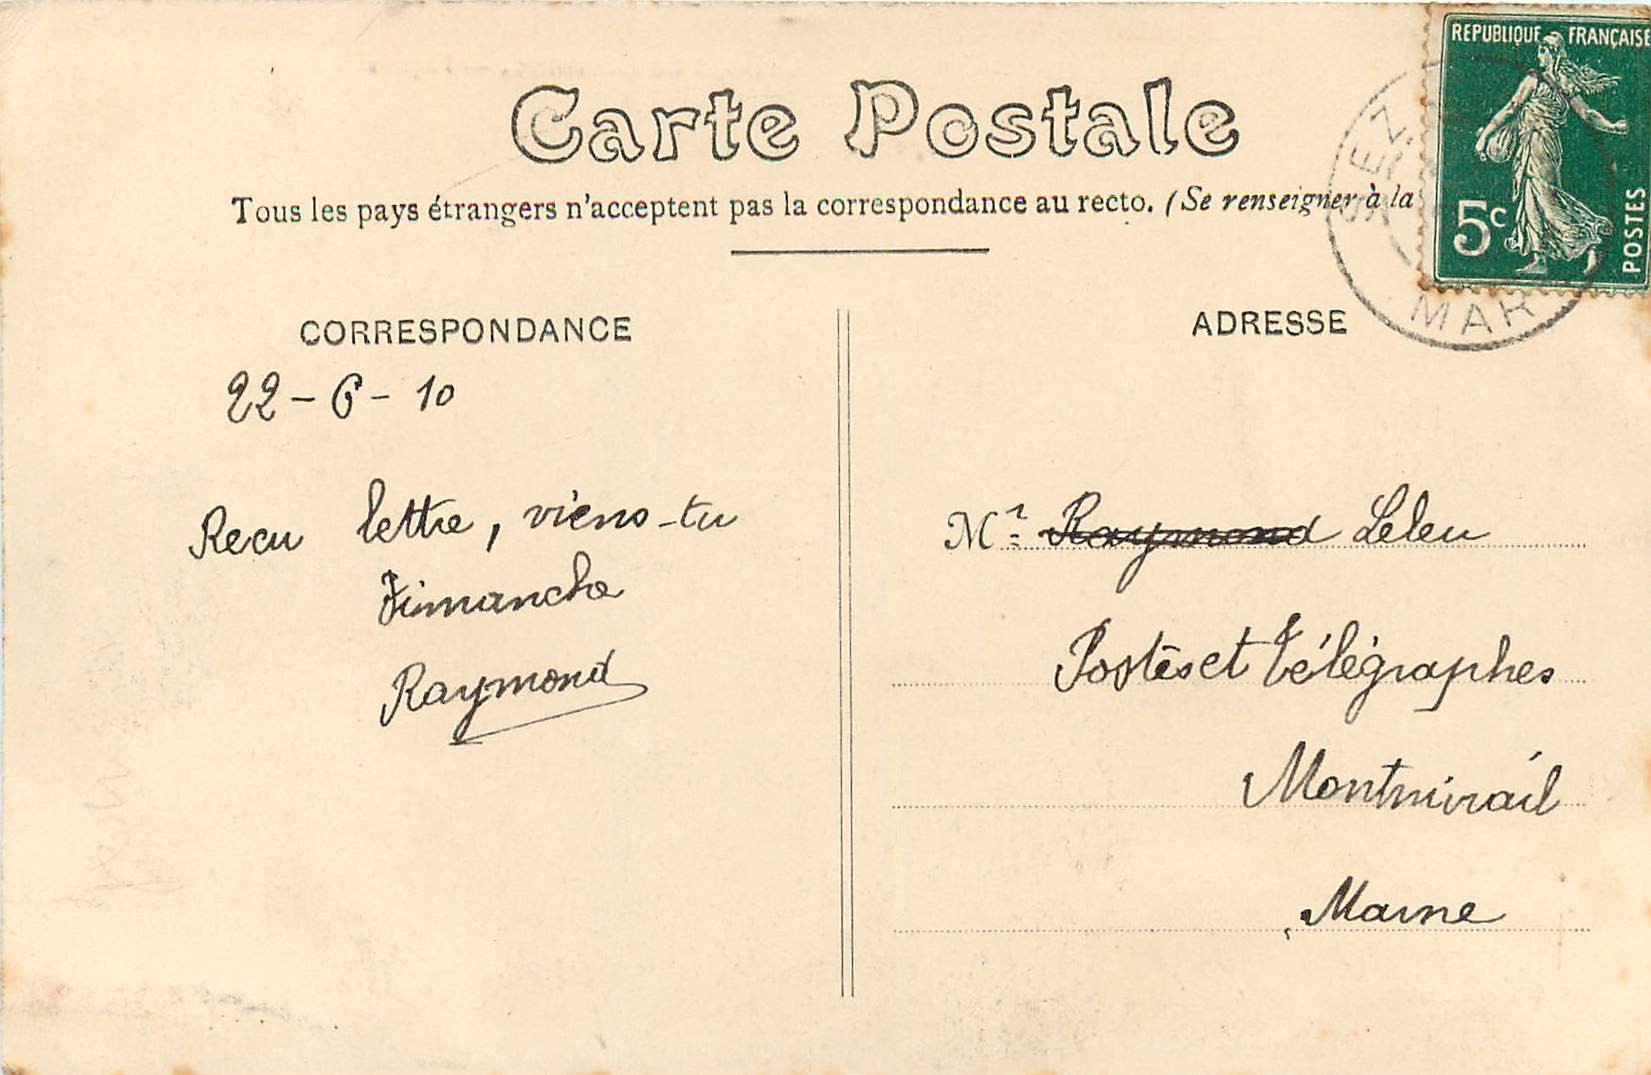 Carte Postale
Tous les pays étrangers n'acceptent pas la correspondance au recto. (Se renseigner à la
REPUBLIQUE FRANÇAISE
5c
POSTES
EZ
MAR
CORRESPONDANCE
22 - 6 - 10
Recu lettre, viens-tu
Dimanche
Raymond
ADRESSE
Mr Raymond Leleu
Postes et Télégraphes
Montmirail
Marne